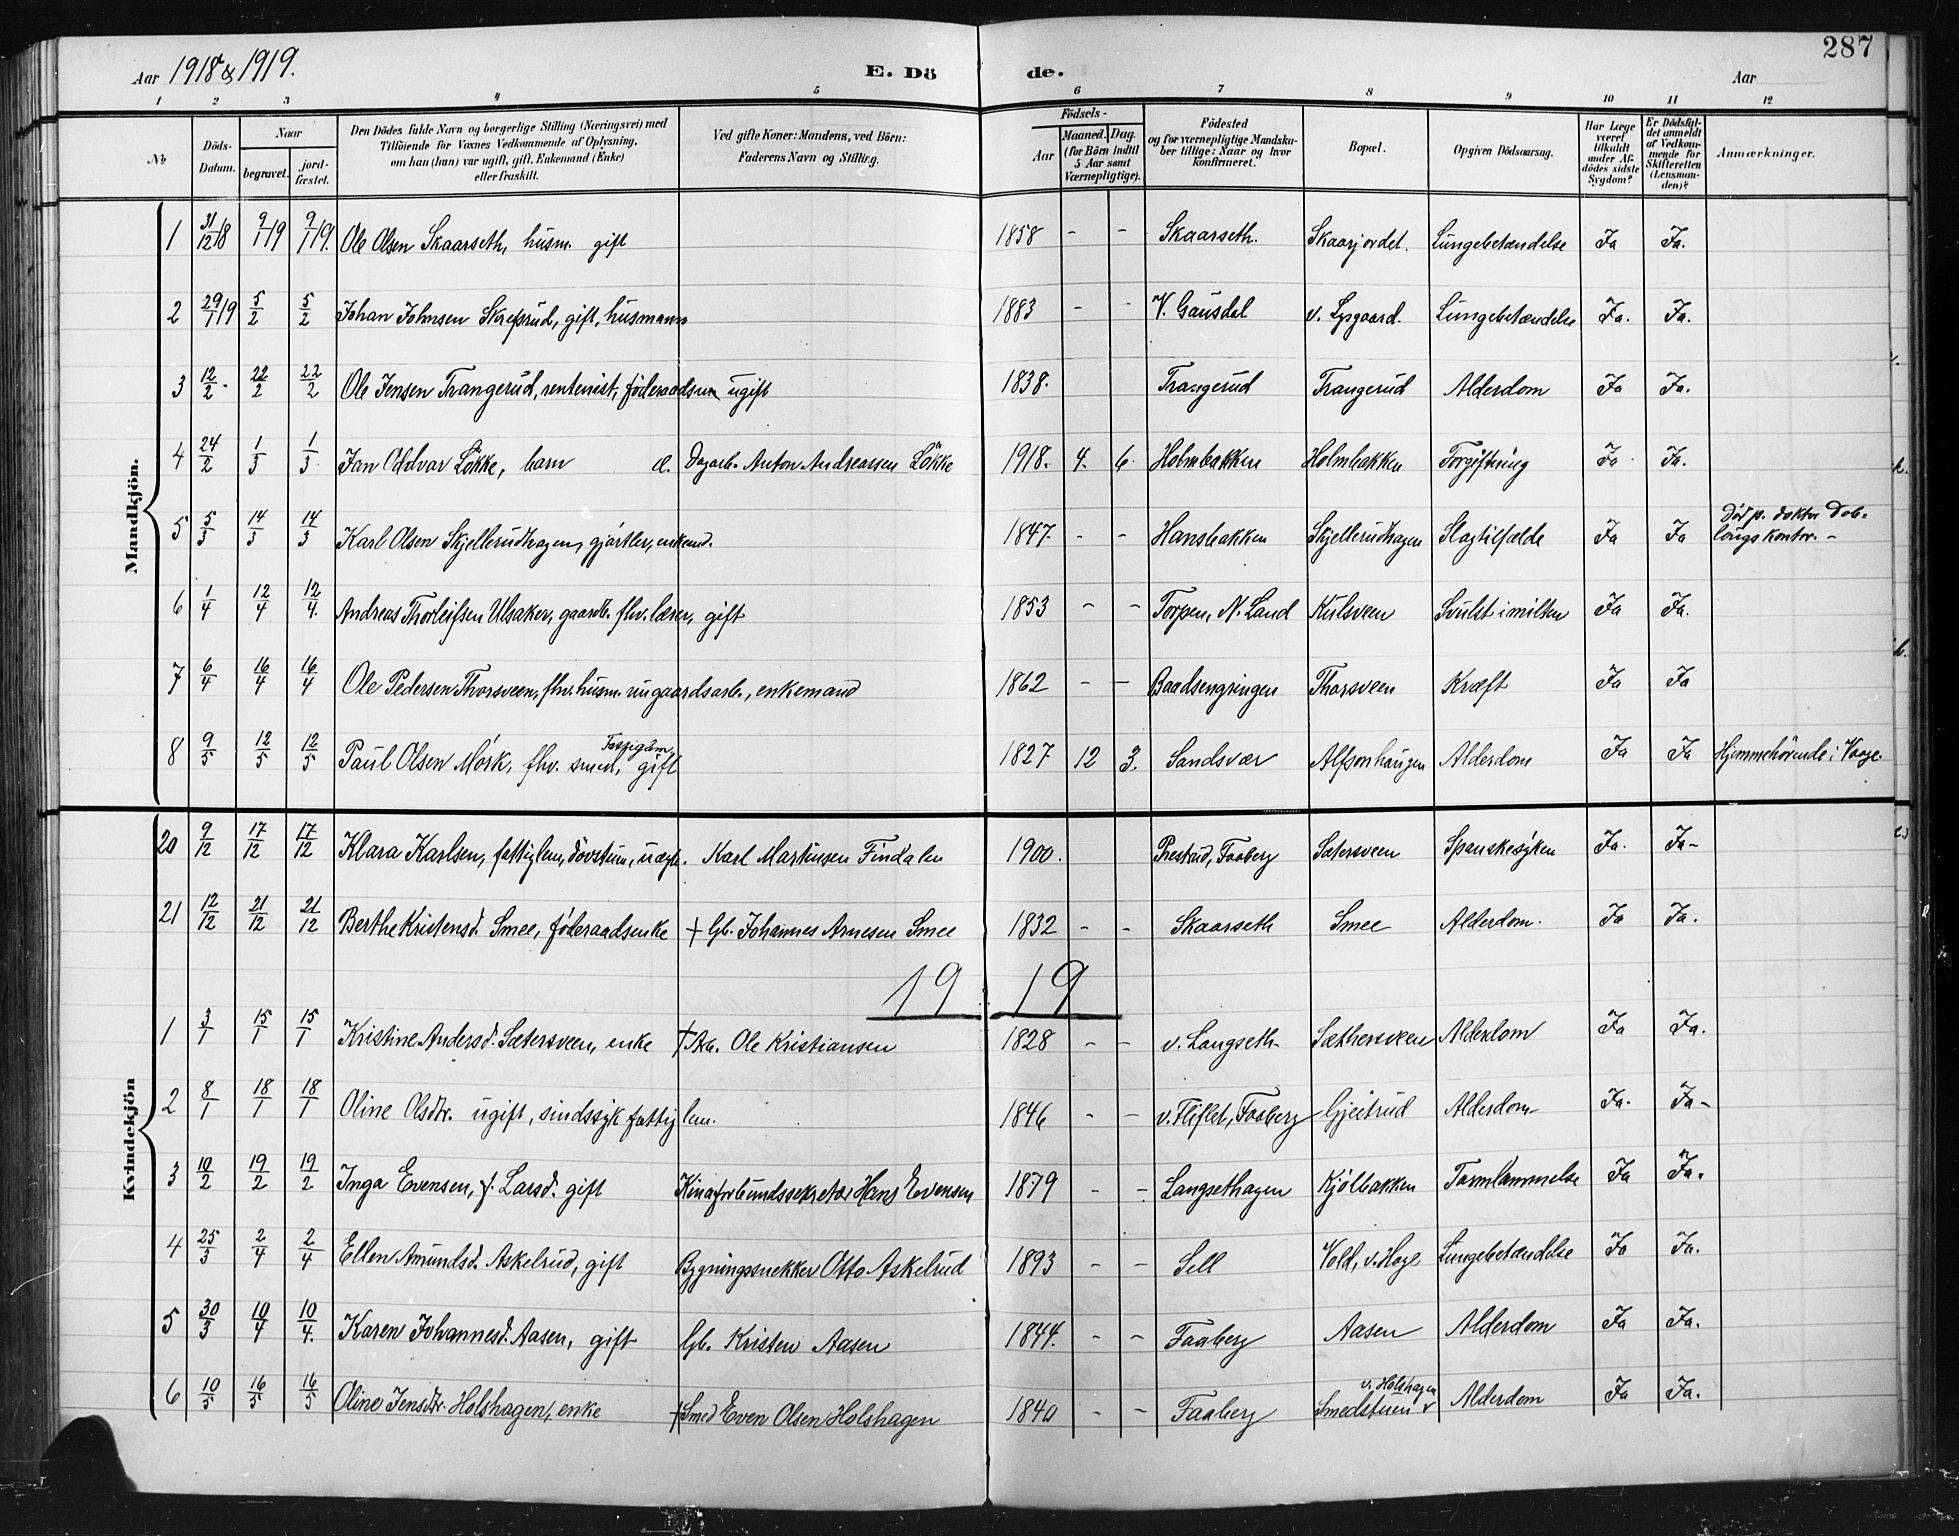 287
Aar 1918 & 1919.
E. Dö de.
Aar
1 2 3 4 5 6 7 8 9 10 11 12
No
Döds-Datum.
Naar begravet. jord-fæstet.
Den Dödes fulde Navn og borgerlige Stilling (Næringsvei) med
Tilföiende for Voxnes Vedkommende af Oplysning,
om han (hun) var ugift, gift, Enkemand (Enke)
eller fraskilt.
Ved gifte Koner: Mandens, ved Börn:
Faderens Navn og Stilling.
Födsels-
Aar
Maaned. Dag.
(for Börn indtil
5 Aar samt
Værnepligtige).
Födested
og for værnepligtige Mandska-
ber tillige: Naar og hvor
konfirmeret.
Bopæl.
Opgiven Dödsaarsag.
Har Læge
været
tilkaldt
under Af-
dödes sidste
Sygdom?
Er Dödsfal-
det anmeldt
af Vedkom-
mende for
Skifteretten
(Lensman-
den)?
Anmærkninger.
Mandkjön.
1 31/12 18 9/1 19 9/1 19. Ole Olsen Skaarseth, husm. gift 1858 - - Skaarseth. Skaarjordet. Lungebetændelse Ja Ja.
2 29/1 19 5/2 5/2 Johan Johnsen Skrefsrud, gift, husmann 1883 - - V. Gausdal v. Lysgaard. Lungebetændelse Ja. Ja.
3 12/2 22/2 22/2 Ole Jensen Trangerud, rentenist, föderaadsm ugift 1838. Trangerud Trangerud Alderdom Ja Ja.
4 24/2 1/3 1/3 Jan Oddvar Lökke, barn a. Dagarb. Anton Andreassen Lökke 1918. 4. 6. Holmbakken Holmbakken Forgiftning Ja Ja.
5 5/3 14/3 14/3 Karl Olsen Skjellerudhagen, gjørtler, enkemd. 1847. - - Hansbakken Skjellerudhagen Slagtilfælde Ja Ja Död p. doktor Dob-
lougs kontor. -
6 1/4 12/4 12/4. Andreas Thorleifsen Ulsaker, gaardb. fhv. lærer, gift 1853 - - Torpen, N. Land Kulsveen Svulst i milten Ja Ja.
7 6/4 16/4 16/4 Ole Pedersen Thorsveen, fhv. husm. nu gaardsarb., enkemand 1862 - - Baadsengringen Thorsveen Kræft Ja Ja
8 9/5 12/5 12/5 Paul Olsen Mörk, fhv. smed, gift 1827 12 3. Sandsvær Alfsonhaugen Alderdom Ja Ja Hjemmehörende i Vaage.
Kvindekjön
20 9/12 17/12 17/12 Klara Karlsen, fattiglem, dövstum, uægte. Karl Martinsen Findalen 1900. Prestrud, Faaberg Sætersveen Spanskesyken Ja. Ja-
21 12/12 21/12 21/12 Berthe Kristensd. Smee, föderaadsenke + Gb. Johannes Arnesen Smee 1832 - - Skaarseth Smee Alderdom. Ja Ja.
19 19
1 3/1 15/1 15/1 Kristine Andersd. Sætersveen, enke + Ole Kristiansen 1828 - - v. Langseth Sæthersveen Alderdom Ja Ja.
2 8/1 18/1 18/1 Oline Olsdtr. ugift, sindssyk fattiglem. 1846 - - v. Fliflet, Faaberg Gjeitrud Alderdom Ja. Ja-
3 10/2 19/2 19/2 Inga Evensen, f. Larsd. gift Kinaforbundssekretær Hans Evensen 1879 - - Langsethagen Kjölbakken Tarmlammelse Ja Ja.
4 25/3 2/4 2/4 Ellen Amundsd. Askelrud, gift Bygningssnekker Otto Askelrud 1893 - - Sell Vold, v. Hage Lungebetændelse Ja Ja.
5 30/3 10/4 10/4. Karen Johannesd. Aasen, gift Gb. Kristen Aasen 1844. - - Faaberg Aasen Alderdom Ja Ja.
6 10/5 16/5 16/5 Oline Jensdtr. Holshagen, enke + Smed Even Olsen Holshagen 1840 - - Faaberg Smedstuen v. Holshagen Alderdom Ja Ja.